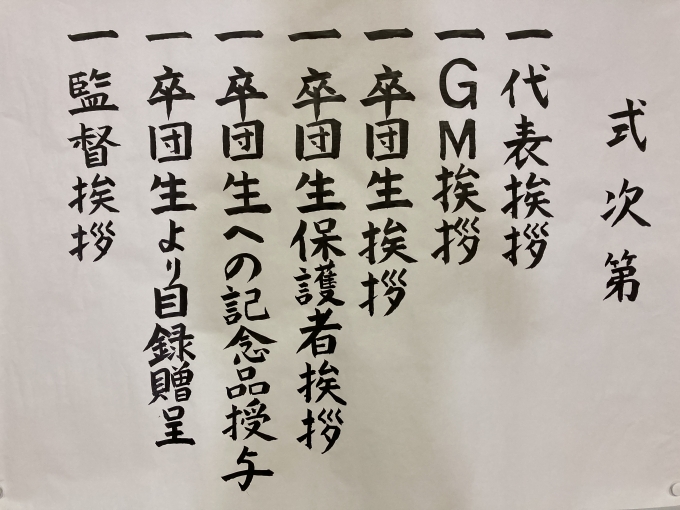 式次第
一 代表挨拶
一 GM挨拶
一 卒団生挨拶
一 卒団生保護者挨拶
一 卒団生への記念品授与
一 卒団生より目録贈呈
一 監督挨拶